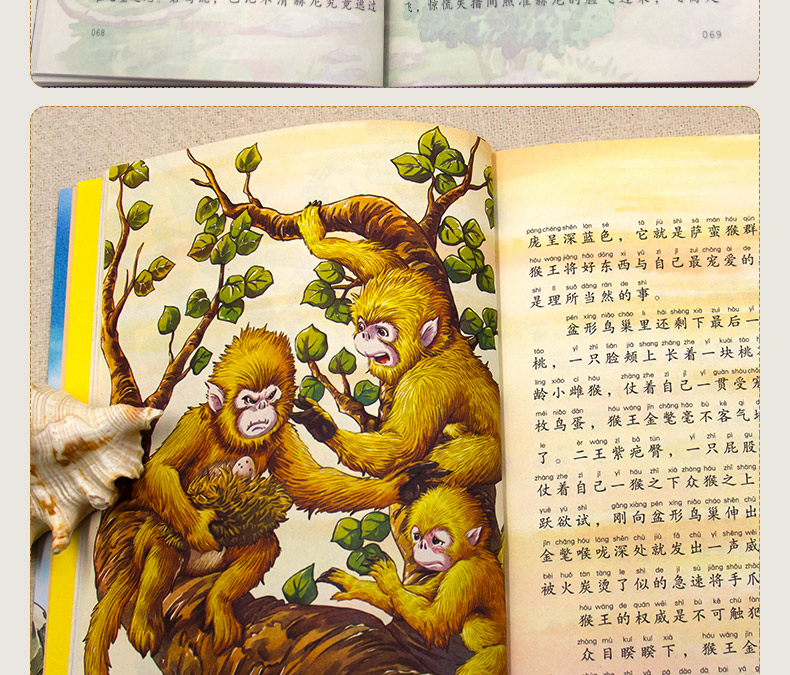 究竟逃过
飞，惊慌失措间照准赫尼的脸飞过来，
068
069
páng chéng shēn lán sè tā jiù shì sà mán hóu qún
庞呈深蓝色，它就是萨蛮猴群
hóu wáng jiāng hǎo dōng xi yǔ zì jǐ zuì chǒng ài de
猴王将好东西与自己最宠爱的
shì lǐ suǒ dāng rán de shì
是理所当然的事。
pén xíng niǎo cháo li hái shèng xià zuì hòu yī
盆形鸟巢里还剩下最后一
táo yì zhī liǎn jiá shang zhǎng zhe yí kuài táo
桃，一只脸颊上长着一块桃
líng xiǎo cí hóu zhàng zhe zì jǐ yí guàn shòu chǒng
龄小雌猴，仗着自己一贯受宠
méi niǎo dàn hóu wáng jīn máo háo bù kè qì
枚鸟蛋，猴王金氅毫不客气地
le èr wáng zǐ bā tún yì zhī pì gu
了。二王紫疤臀，一只屁股
zhàng zhe zì jǐ yì hóu zhī xià zhòng hóu zhī shàng
仗着自己一猴之下众猴之上
yuè yù shì gāng xiàng pén xíng niǎo cháo shēn chū
跃欲试，刚向盆形鸟巢伸出
jīn chǎng hóu lóng shēn chù jiù fā chū yì shēng wēi
金氅喉咙深处就发出一声威
bèi huǒ tàn tàng le shì de jí sù jiāng shǒu zhǎo
被火炭烫了似的急速将手爪
hóu wáng de quán wēi shì bù kě chù fàn
猴王的权威是不可触犯
zhòng mù kuí kuí xià hóu wáng jīn
众目睽睽下，猴王金